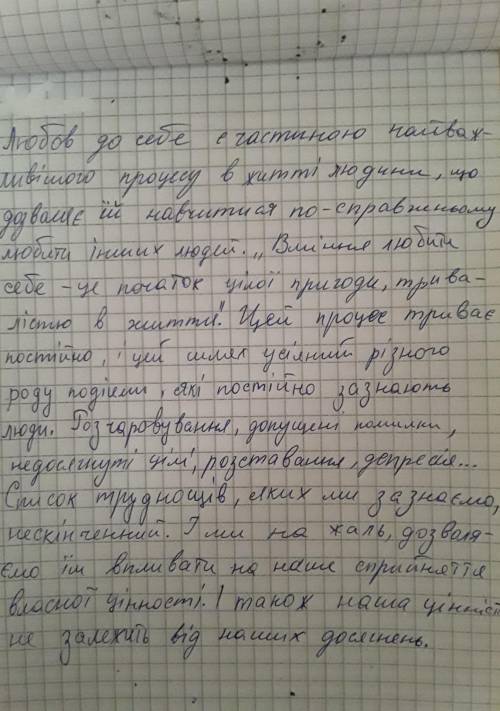 Любов до себе є частиною найваж-
ливішого процесу в житті людини, що
дозваляє їй навчитися по-справжньому
любити інших людей. „Вміння любити
себе – це початок цілої пригоди, трива-
лістю в життя". Цей процес триває
постійно, і цей шлях усіяний різного
роду подіями, які постійно зазнають
люди. Розчаровування, допущені помилки,
недосягнуті цілі, розставання, депресія...
Список труднощів, яких ми зазнаємо,
нескінченний. І ми на жаль, дозволя-
ємо їм впливати на наше сприйняття
власної цінності. І також наша цінність
не залежить від наших досягнень.